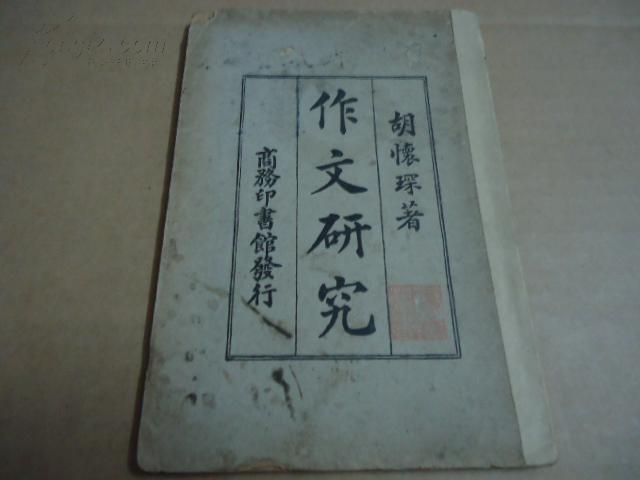 胡懷琛著
作文研究
商務印書館發行